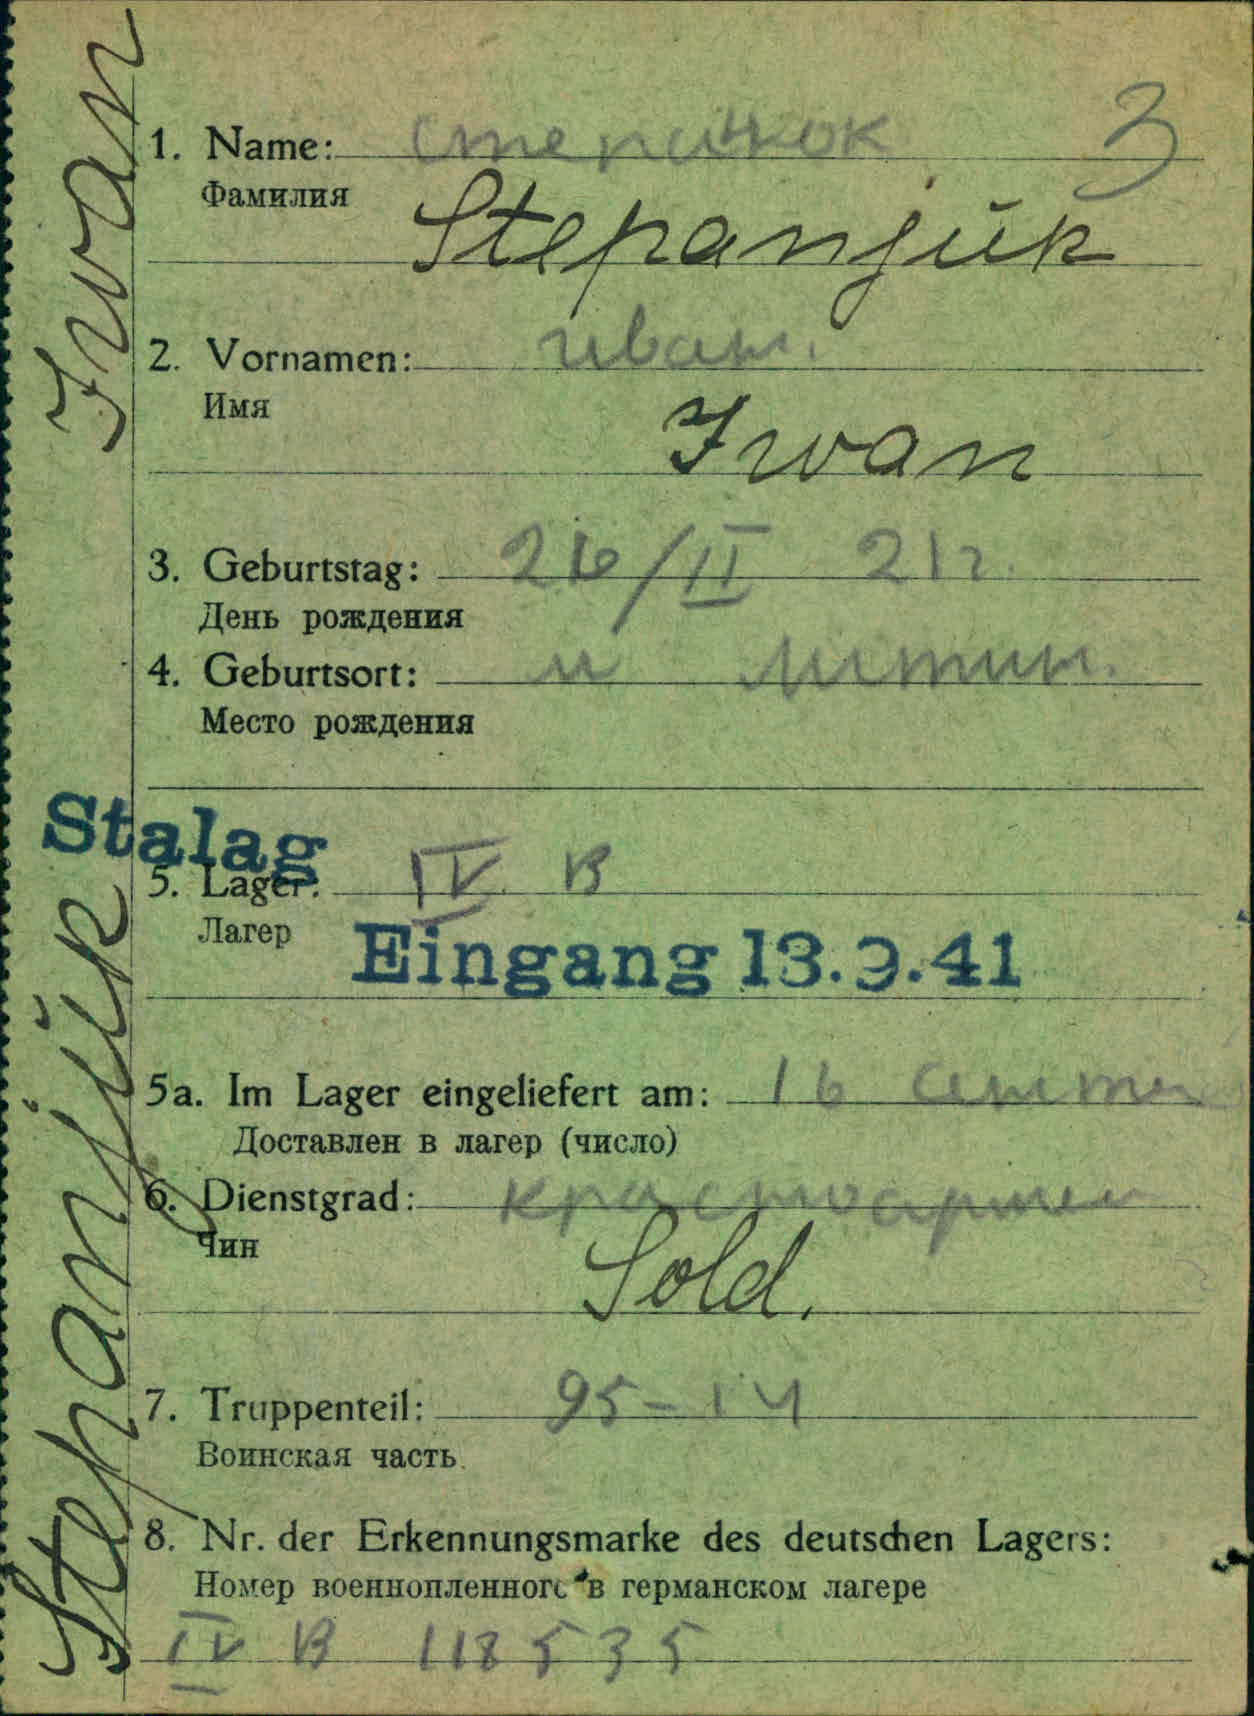 Stepanjŭk Iwan
3
1. Name: степанюк
Фамилия
Stepanjŭk
2. Vornamen: иван.
Имя
Iwan
3. Geburtstag: 26/II 21г.
День рождения
4. Geburtsort:
Место рождения
Stalag
5. Lager: IV B
Лагер
Eingang 13.9.41
5a. Im Lager eingeliefert am: 16
Доставлен в лагер (число)
6. Dienstgrad: красноармеи
Чин
Sold.
7. Truppenteil: 95-14
Воинская часть
8. Nr. der Erkennungsmarke des deutschen Lagers:
Номер военнопленного в германском лагере
IV B 118535